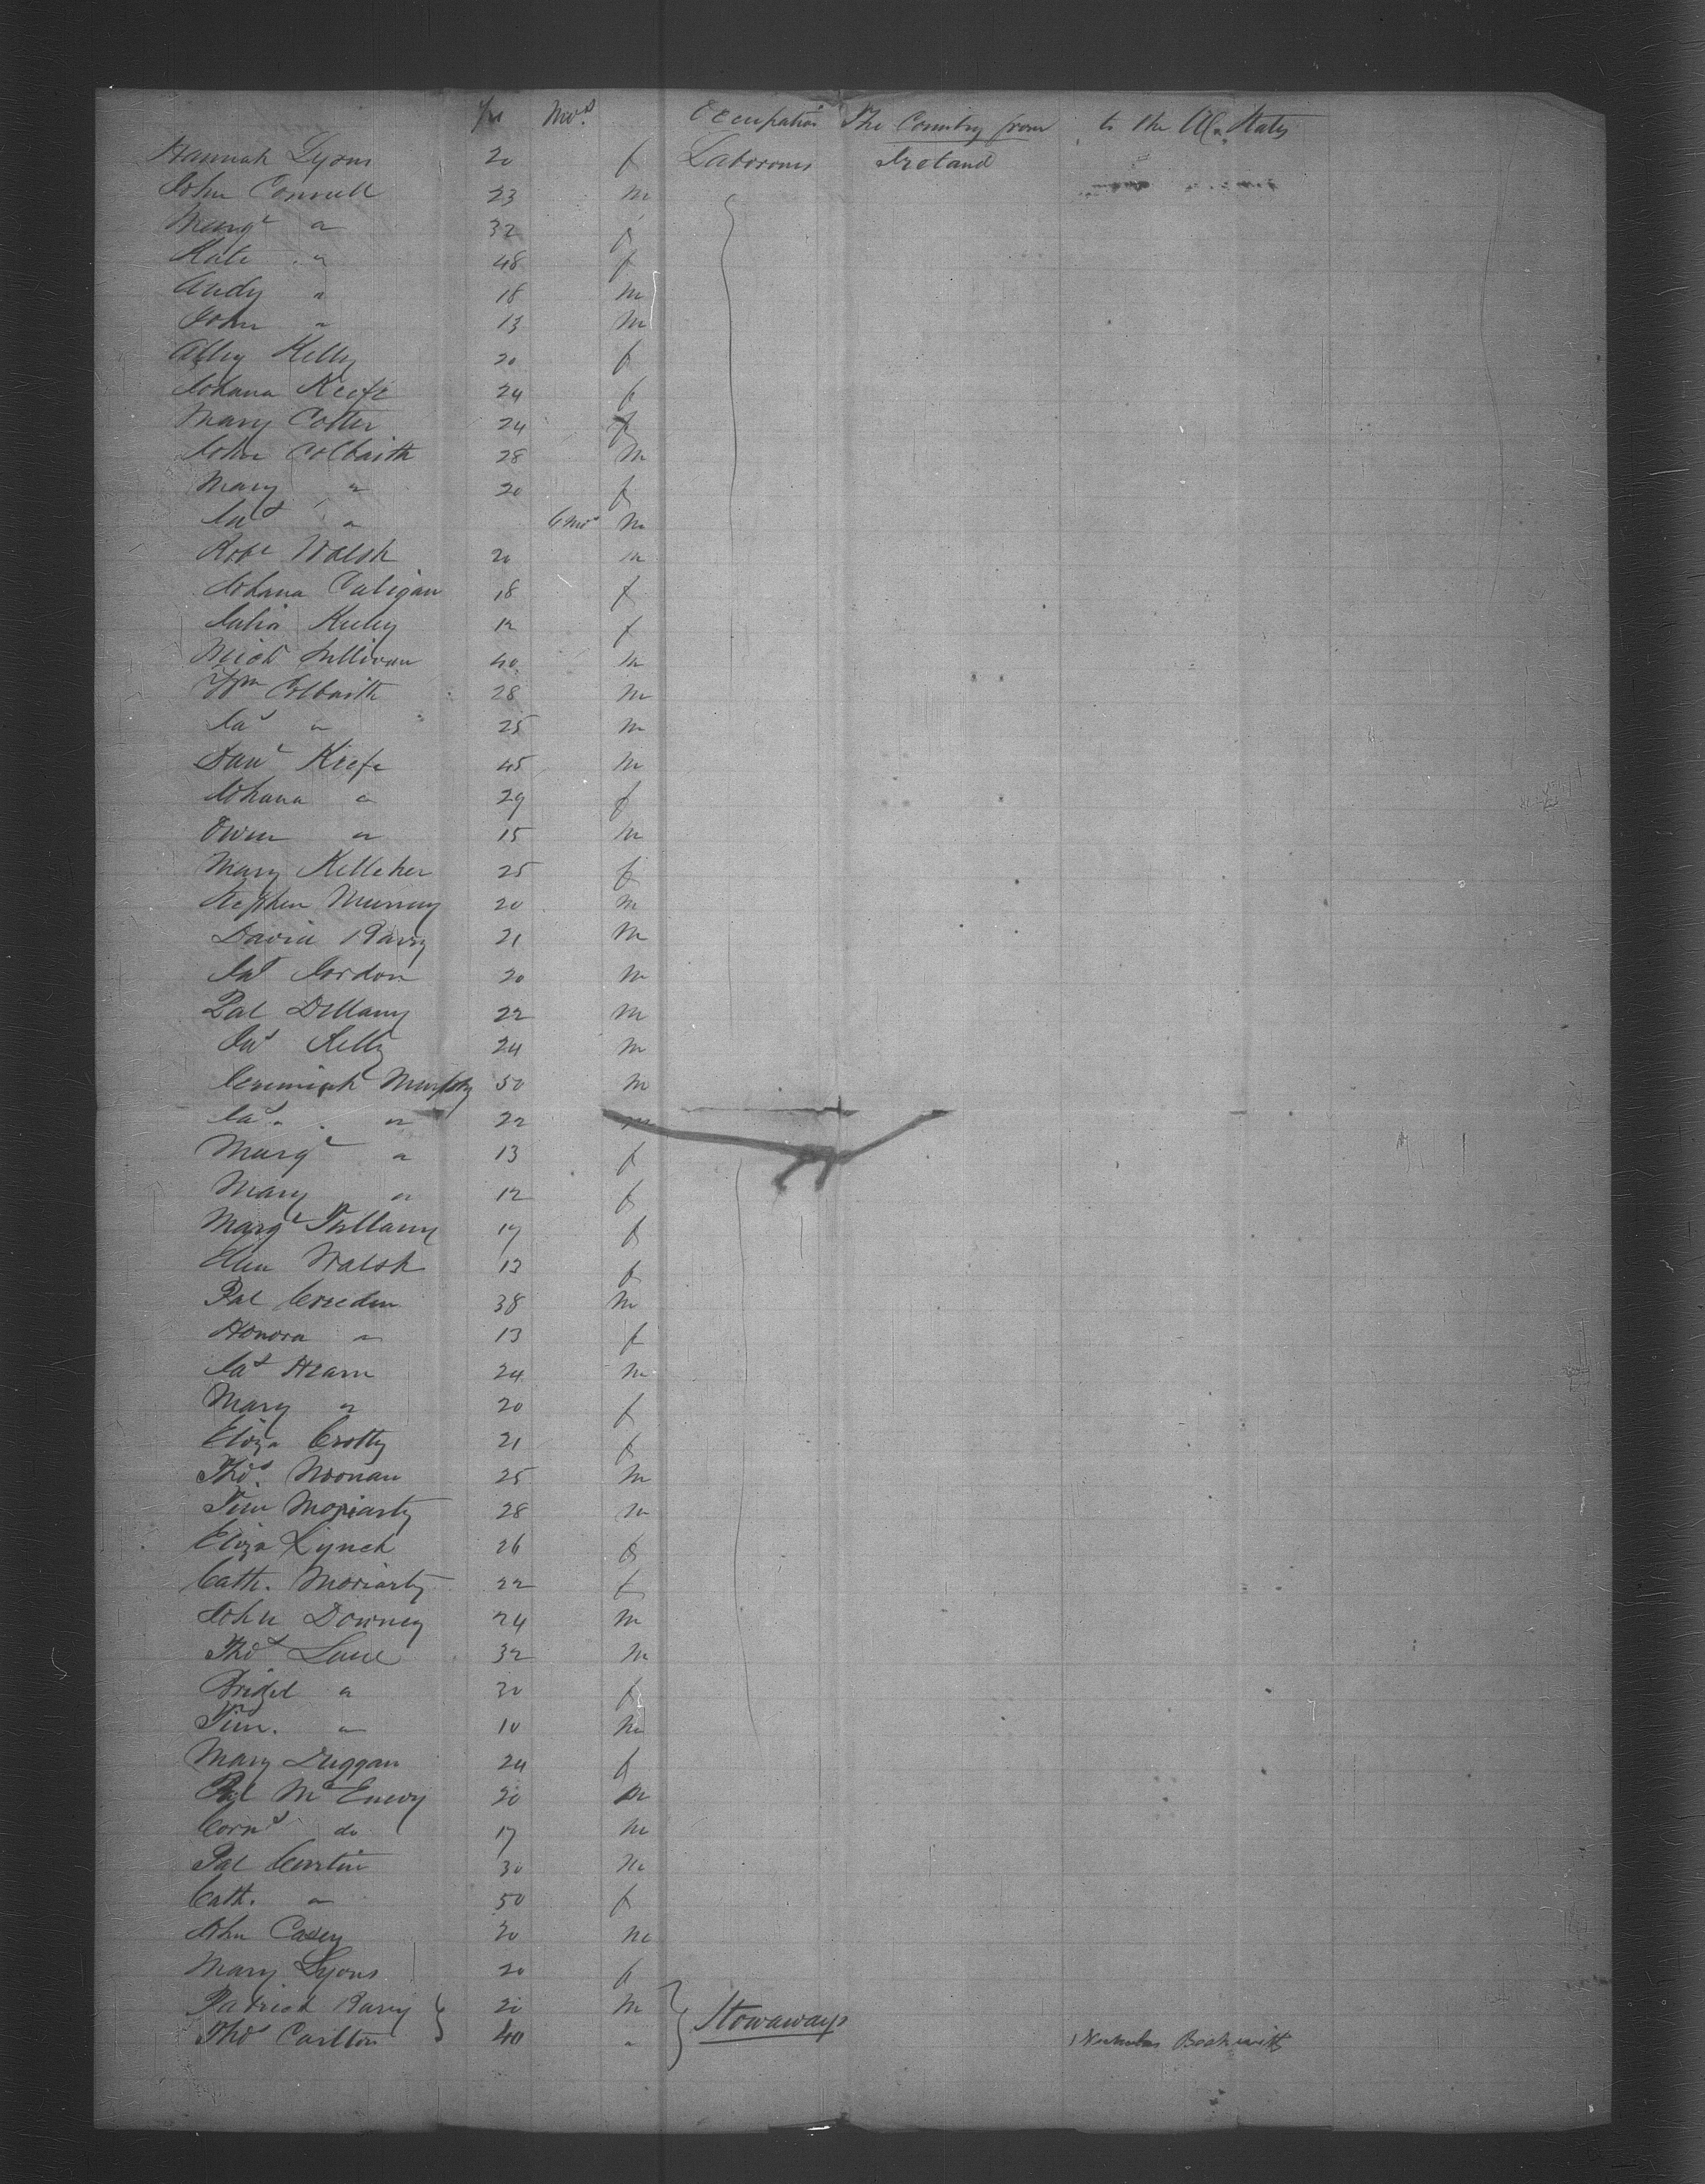 Yrs Mos. Occupation The Country from to the U. States
Hannah Lyons 20 f Laborours Ireland
John Connell 23 m
Margt " 32 f
Kate " 48 f
Andy " 18 m
John " 13 m
Abby Kelly 20 f
Johana Keefe 24 f
Mary Cotter 24 f
John Colbaith 28 m
Mary " 20 f
Jas " 6 mos m
Robt Walsh 20 m
Johana Culigan 18 f
Julia Kuley 12 f
Mich Sullivan 40 m
Wm Colbaith 28 m
Jas " 25 m
Danl Keefe 45 m
Johana " 29 f
Owen " 15 m
Mary Kelleher 25 f
Stephen Murray 20 m
David Barry 21 m
Jas Jordon 20 m
Pat Dellany 22 m
Jas Kelly 24 m
Jeremiah Murphy 50 m
Jas " 22 m
Margt " 13 f
Mary " 12 f
Margt 17 f
Ellen Walsh 13 f
Pat Creeden 38 m
Honora " 13 f
Jas Hearn 24 m
Mary " 20 f
Eliza Crotty 21 f
Thos. Noonan 25 m
Tim Moriarty 28 m
Eliza Lynch 26 f
Cath. Moriarty 22 f
John Downey 24 m
Thos Lane 32 m
Bridget " 30 f
Tim. " 10 m
Mary Duggan 24 f
Pat McEnery 20 m
Corns do 17 m
Pat Curtin 30 m
Cath. " 50 f
John Casey 20 m
Mary Lyons 20 f
Patrick Barry 20 m Stowaways
Thos Carlton 40 " Nicholas Beckwith